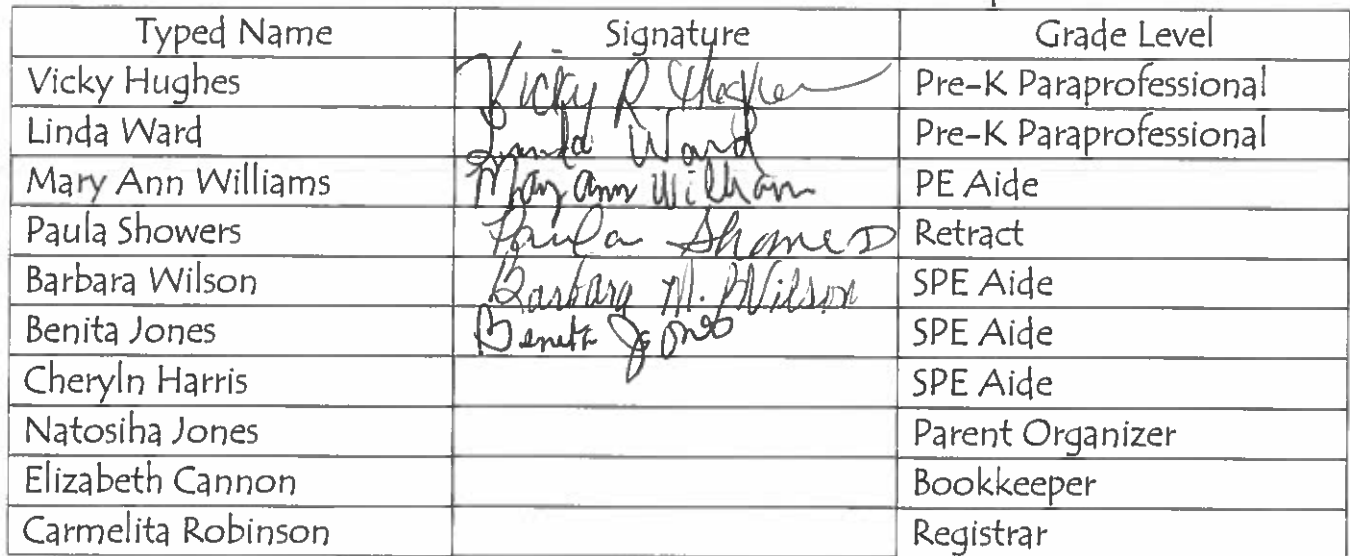 Typed Name Signature Grade Level
Vicky Hughes Vicky R. Hughes Pre-K Paraprofessional
Linda Ward Linda Ward Pre-K Paraprofessional
Mary Ann Williams Mary Ann William PE Aide
Paula Showers Paula Showers Retract
Barbara Wilson Barbara M. Wilson SPE Aide
Benita Jones Benita Jones SPE Aide
Cheryln Harris SPE Aide
Natosiha Jones Parent Organizer
Elizabeth Cannon Bookkeeper
Carmelita Robinson Registrar